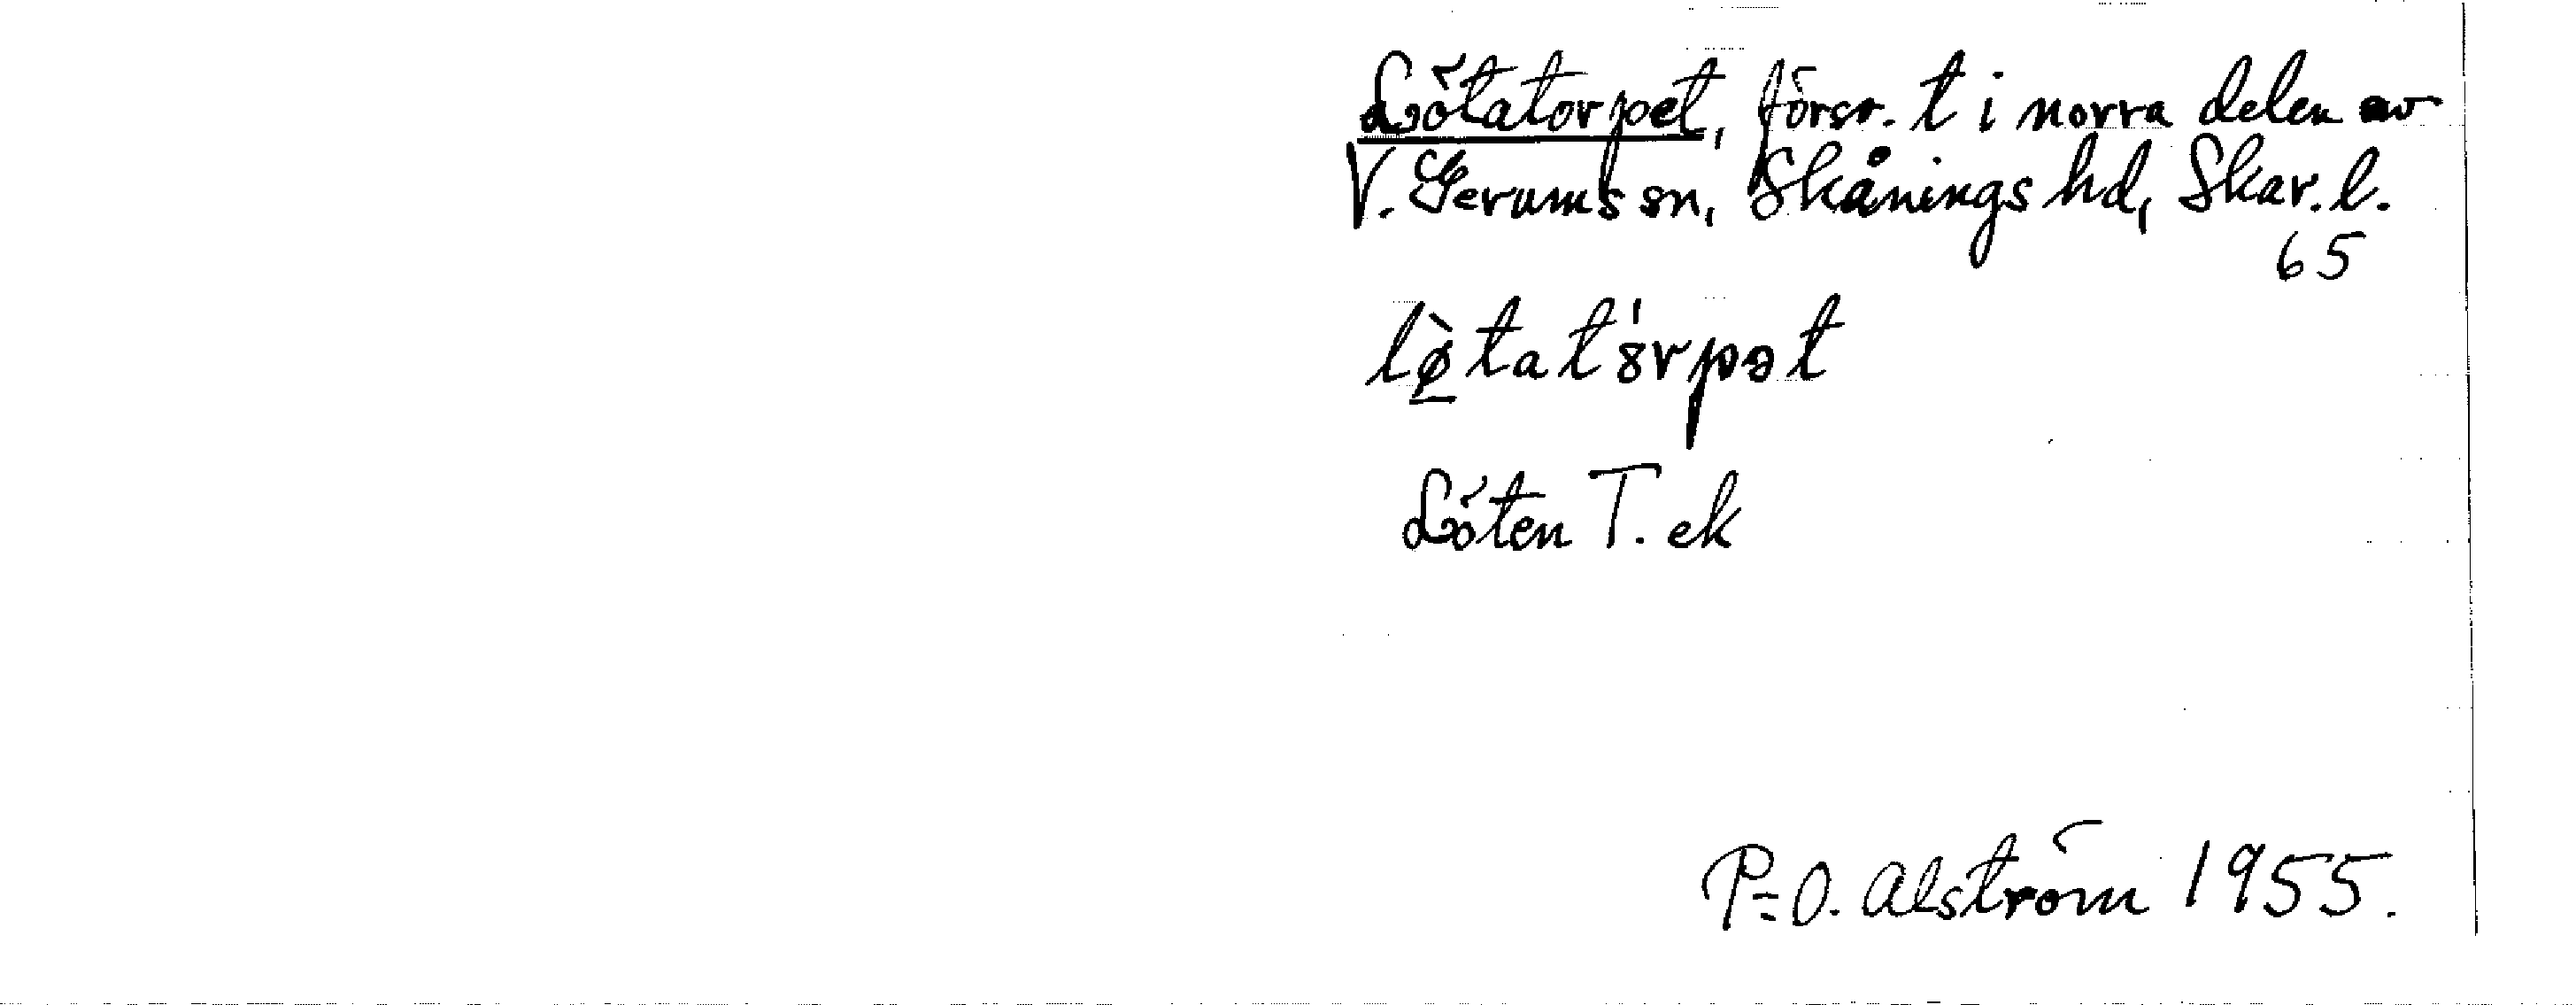 Lötatorpet, försv. t i norra delen av
V. Gerums sn, Skånings hd, Skar. l.
65
lø̠̀tatȯ́rpət
Löten T. ek
P-O. Alström 1955.